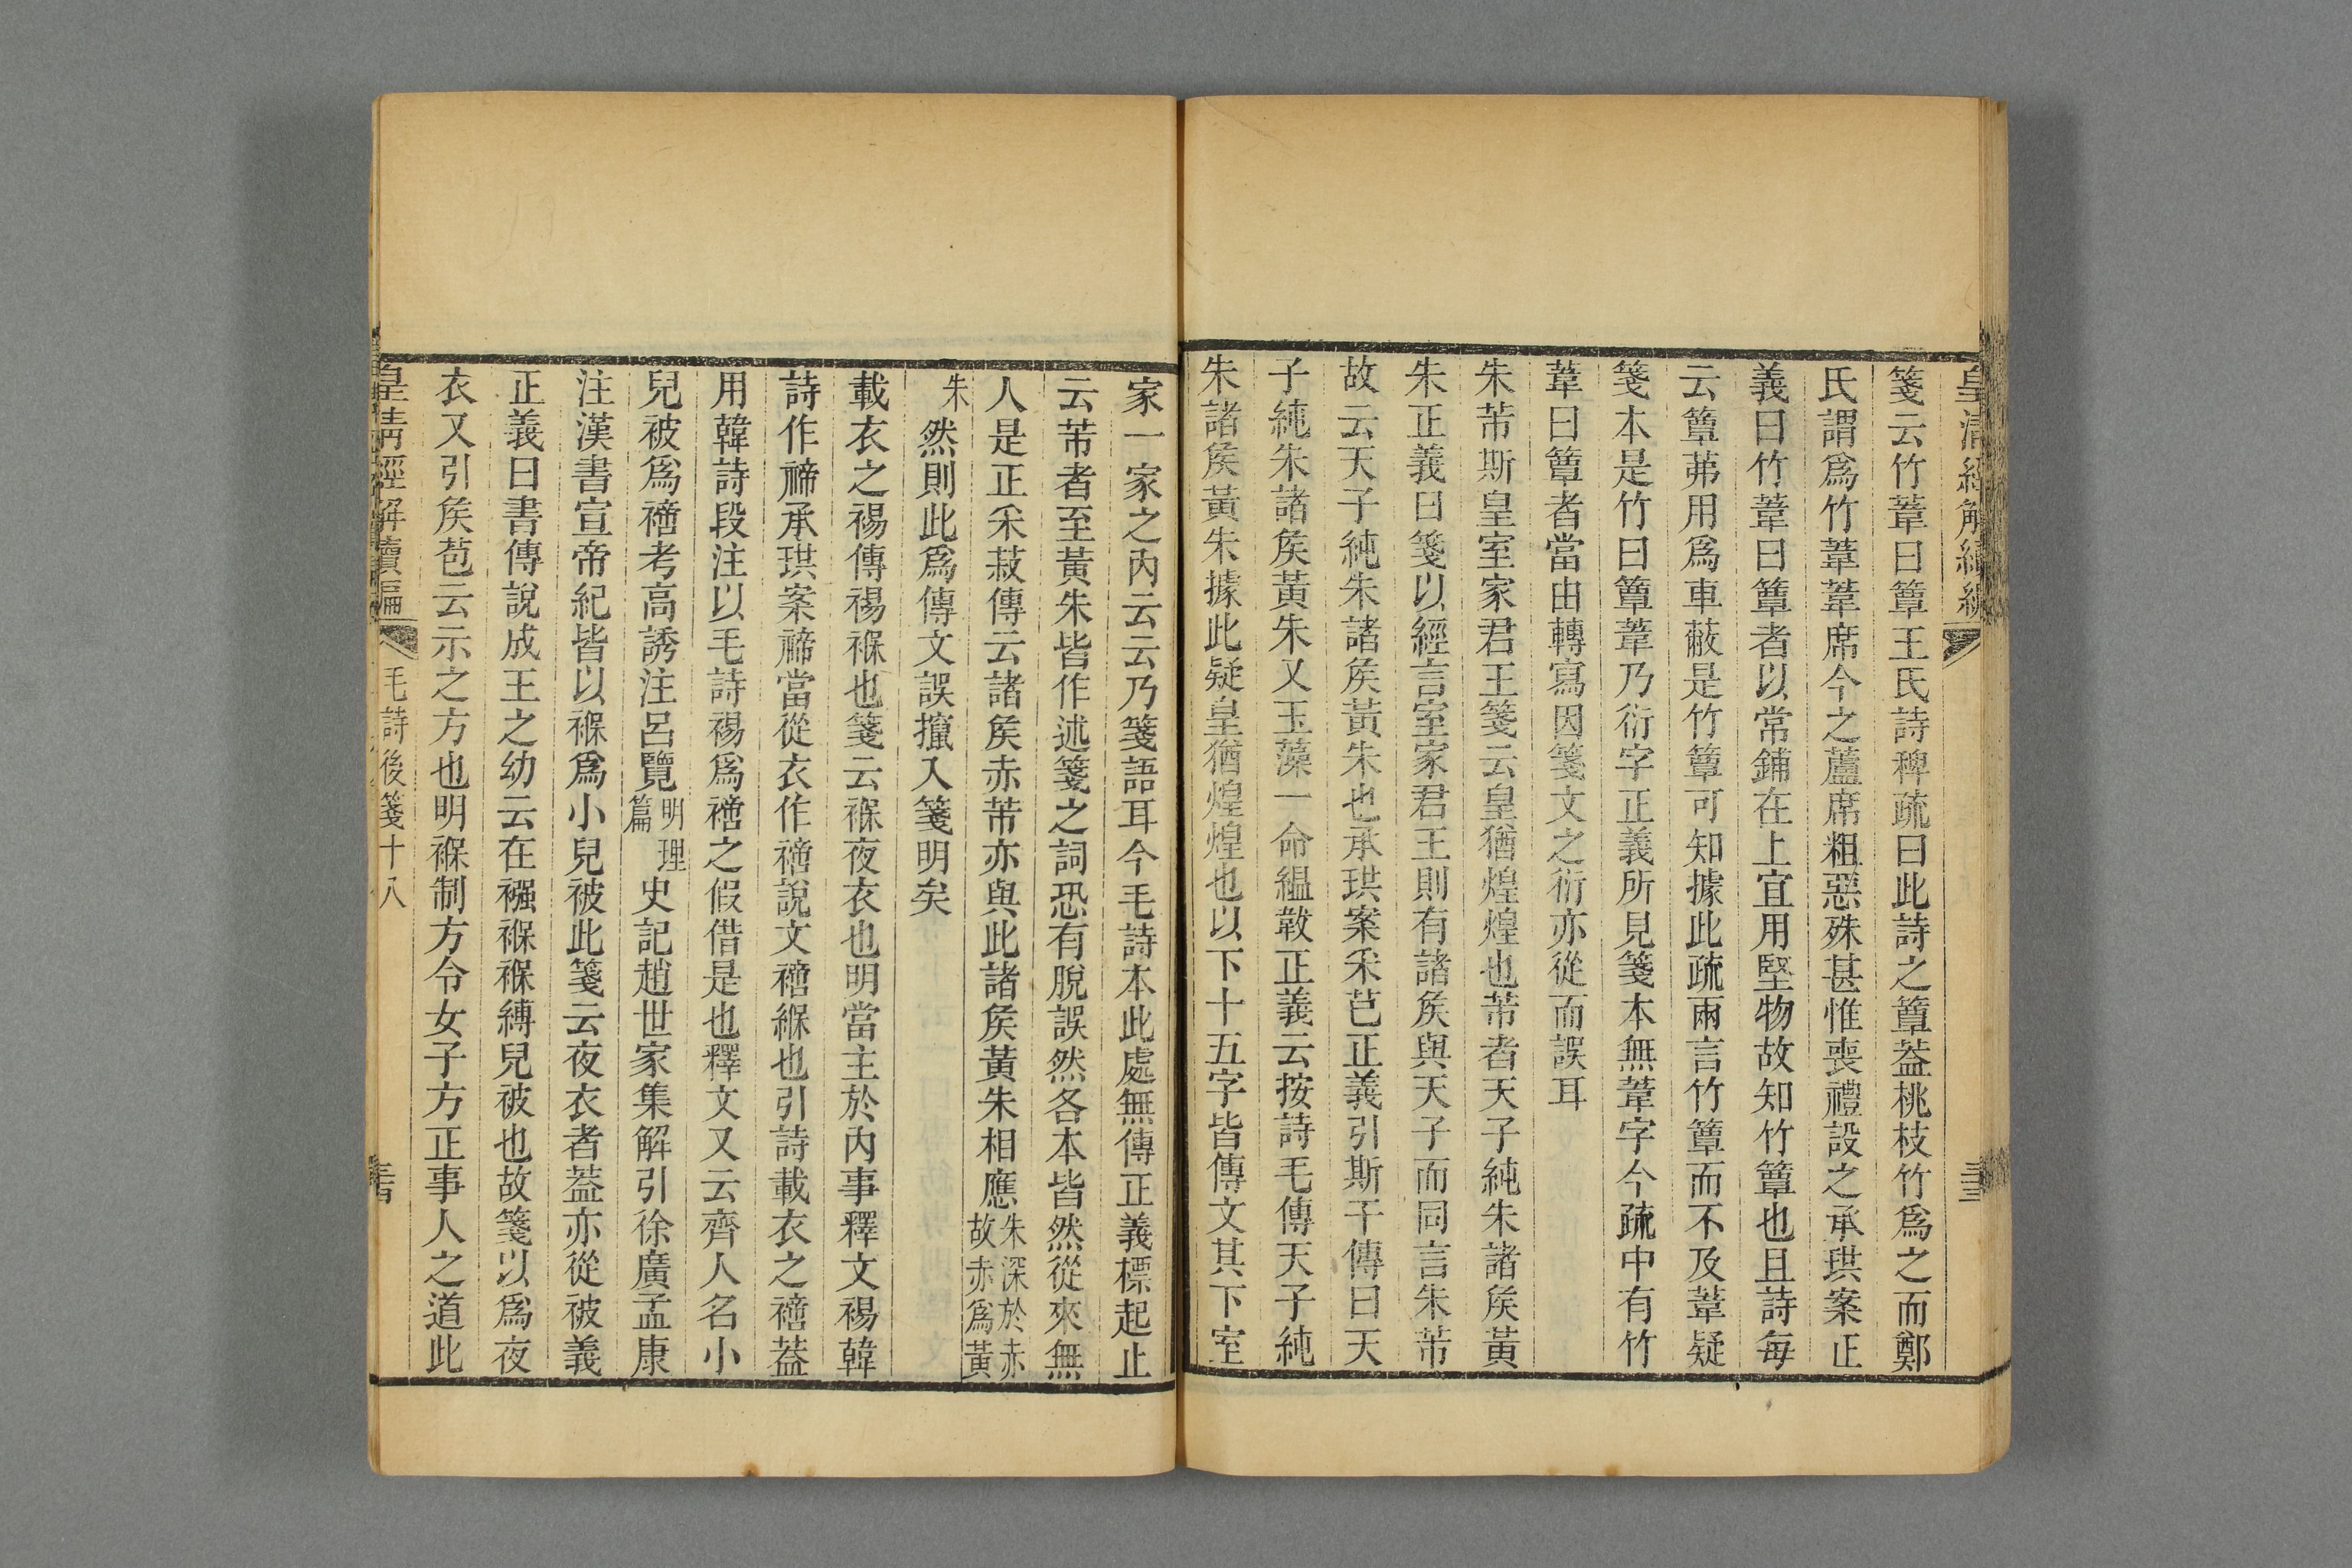 皇清經解續編
三十三
箋云竹葦曰簟王氏詩稗疏曰此詩之簟葢桃枝竹爲之而鄭
氏謂爲竹葦葦席今之蘆席粗惡殊甚惟喪禮設之承珙案正
義曰竹葦曰簟者以常鋪在上宜用堅物故知竹簟也且詩每
云簟茀用爲車蔽是竹簟可知據此疏兩言竹簟而不及葦疑
箋本是竹曰簟葦乃衍字正義所見箋本無葦字今疏中有竹
葦曰簟者當由轉寫因箋文之衍亦從而誤耳
朱芾斯皇室家君王箋云皇猶煌煌也芾者天子純朱諸矦黃
朱正義曰箋以經言室家君王則有諸矦與天子而同言朱芾
故云天子純朱諸矦黃朱也承珙案采芑正義引斯干傳曰天
子純朱諸矦黃朱又玉藻一命縕韍正義云按詩毛傳天子純
朱諸矦黃朱據此疑皇猶煌煌也以下十五字皆傳文其下室
家一家之內云云乃箋語耳今毛詩本此處無傳正義標起止
云芾者至黃朱皆作述箋之詞恐有脫誤然各本皆然從來無
人是正采菽傳云諸矦赤芾亦與此諸矦黃朱相應朱深於赤故赤爲黃
朱然則此爲傳文誤攛入箋明矣
載衣之裼傳裼褓也箋云褓夜衣也明當主於內事釋文裼韓
詩作禘承珙案禘當從衣作䙗說文䙗緥也引詩載衣之䙗葢
用韓詩段注以毛詩裼爲䙗之假借是也釋文又云齊人名小
兒被爲䙗考高誘注呂覽明理篇史記趙世家集解引徐廣孟康
注漢書宣帝紀皆以褓爲小兒被此箋云夜衣者葢亦從被義
正義曰書傳說成王之幼云在襁褓褓縛兒被也故箋以爲夜
衣又引矦苞云示之方也明褓制方令女子方正事人之道此
皇清經解續編
毛詩後箋十八